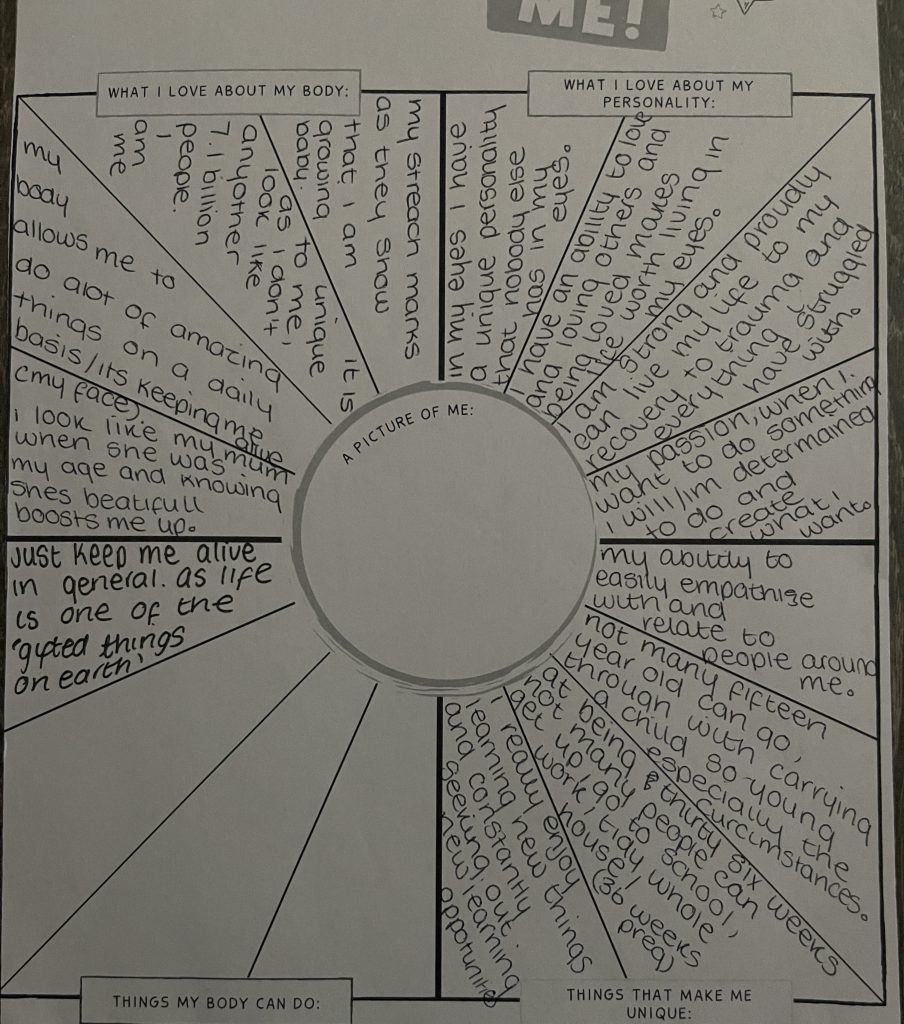 ME!
WHAT I LOVE ABOUT MY BODY:
my streach marks
as they show
that I am
growing
baby.
it is
to me, unique
as I don't
look like
anyother
7.1 billion
people.
I
am
me
my
body
allows me to
do alot of amazing
things on a daily
basis/its keeping me
alive
(my face)
i look like my mum
when she was
my age and knowing
shes beatifull
boosts me up.
WHAT I LOVE ABOUT MY
PERSONALITY:
in my eyes I have
a unique personality
that nobody else
has in my
eyes.
I have an ability to love
and loving others and
being loved makes
life worth living in
my eyes.
I am strong and proudly
can live my life to my
recovery to trauma and
everything I have struggled
with.
my passion, when I
want to do something
i will/im determined
to do and
create
what I
want.
A PICTURE OF ME:
Just keep me alive
in general. as life
is one of the
'gifted things
on earth'
THINGS MY BODY CAN DO:
my ability to
easily empathise
with and
relate to
people around
me.
not many fifteen
year old can go,
through with carrying
a child so young
especially the
curcimstances.
at being thirty six weeks
not many people can
get up, go to school,
work, tidy whole
house! (36 weeks
preg)
I really enjoy
learning new things
and constantly
seeking out
new learning
oppotunities
THINGS THAT MAKE ME
UNIQUE: